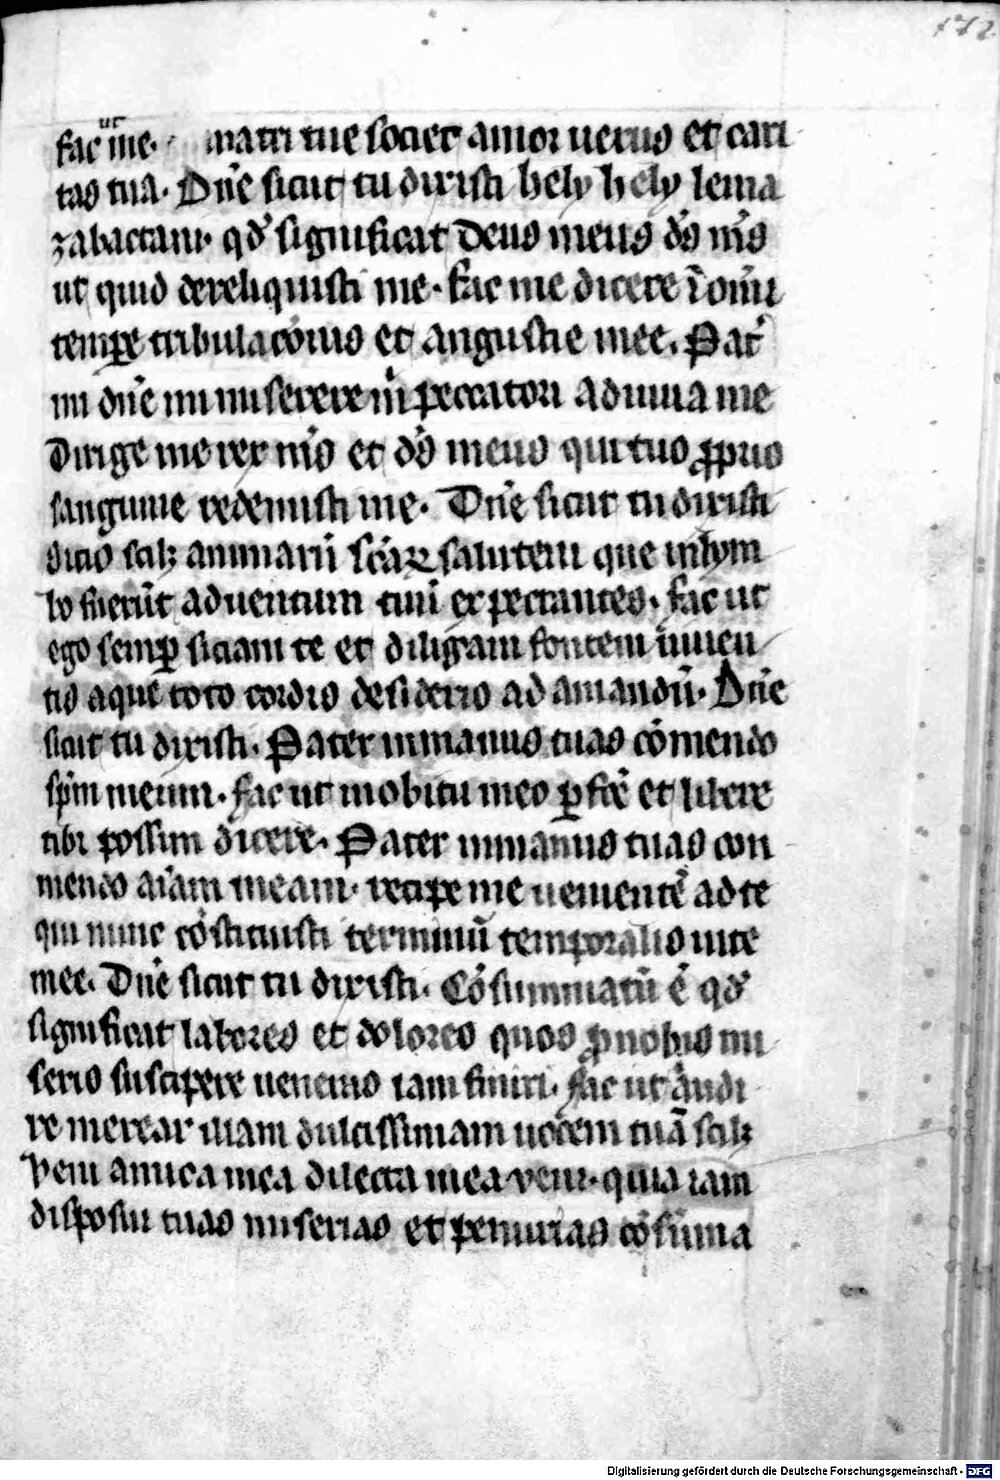 172
fac ut me. matri tue societ amor uerus et cari
tas tua. Dn̄e sicut tu dixisti hely hely lema
zabactani. qd̓ significat Deus meus ds̄ ms̄
ut quid dereliquisti me. fac me dicere ī om̄i
temꝑe tribulacōnis et angustie mee. Pat̓
mi dn̄e mi miserere m̄ peccatori adiuua me
Dirige me rex ms̄ et ds̄ meus qui tuo ꝓprio
sanguine redemisti me. Dn̄e sicut tu dixisti
sicio scilꝫ animarū sc̄aꝝ salutem que in lym
bo fuerūt aduentum tuū expectantes. fac ut
ego semꝑ siciam te et diligam fontem uiuen
tis aque toto cordis desiderio ad amandū. Dn̄e
sicut tu dixisti. Pater inmanus tuas cōmendo
sp̄m meum. fac ut in obitu meo ꝑfc̄e et libere
tibi possim dicere. Pater inmanus tuas con
mendo aīam meam. recipe me uenientē ad te
qui nunc cōstituisti terminū temporalis uite
mee. Dn̄e sicut tu dixisti. Cōsummatū ē qd̓
significat labores et dolores quos ꝓ nobis mi
seris suscipere uenisti iam finiri. fac ut audi
re merear illam dulcissimam uocem tuā scilꝫ
veni amica mea dilecta mea veni. quia iam
disposui tuas miserias et penurias cōsūma
Digitalisierung gefördert durch die Deutsche Forschungsgemeinschaft - DFG